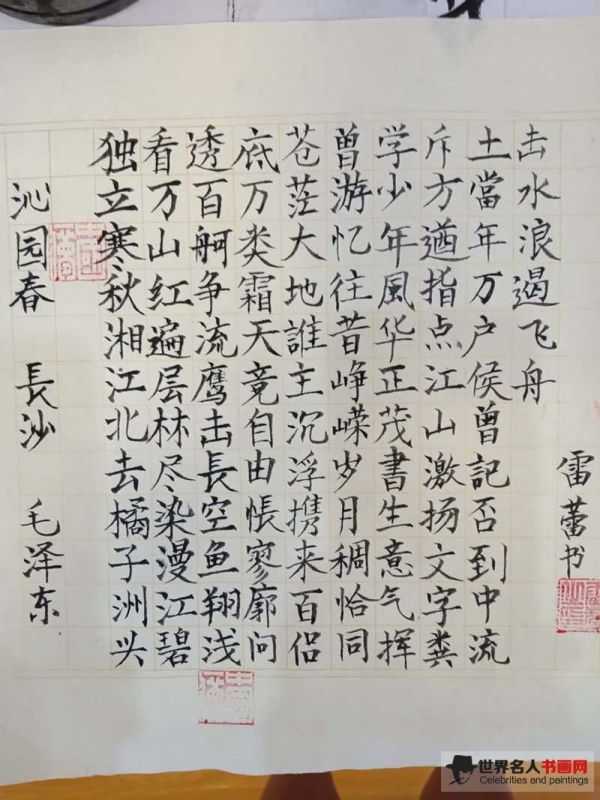 沁园春 長沙 毛泽东
独立寒秋湘江北去橘子洲头
看万山红遍层林尽染漫江碧
透百舸争流鹰击長空鱼翔浅
底万类霜天竞自由悵寥廓问
苍茫大地誰主沉浮携来百侣
曾游忆往昔峥嵘岁月稠恰同
学少年風华正茂書生意气挥
斥方遒指点江山激扬文字粪
土當年万户侯曾記否到中流
击水浪遏飞舟
雷蕾书
世界名人书画网
Celebrities and paintings